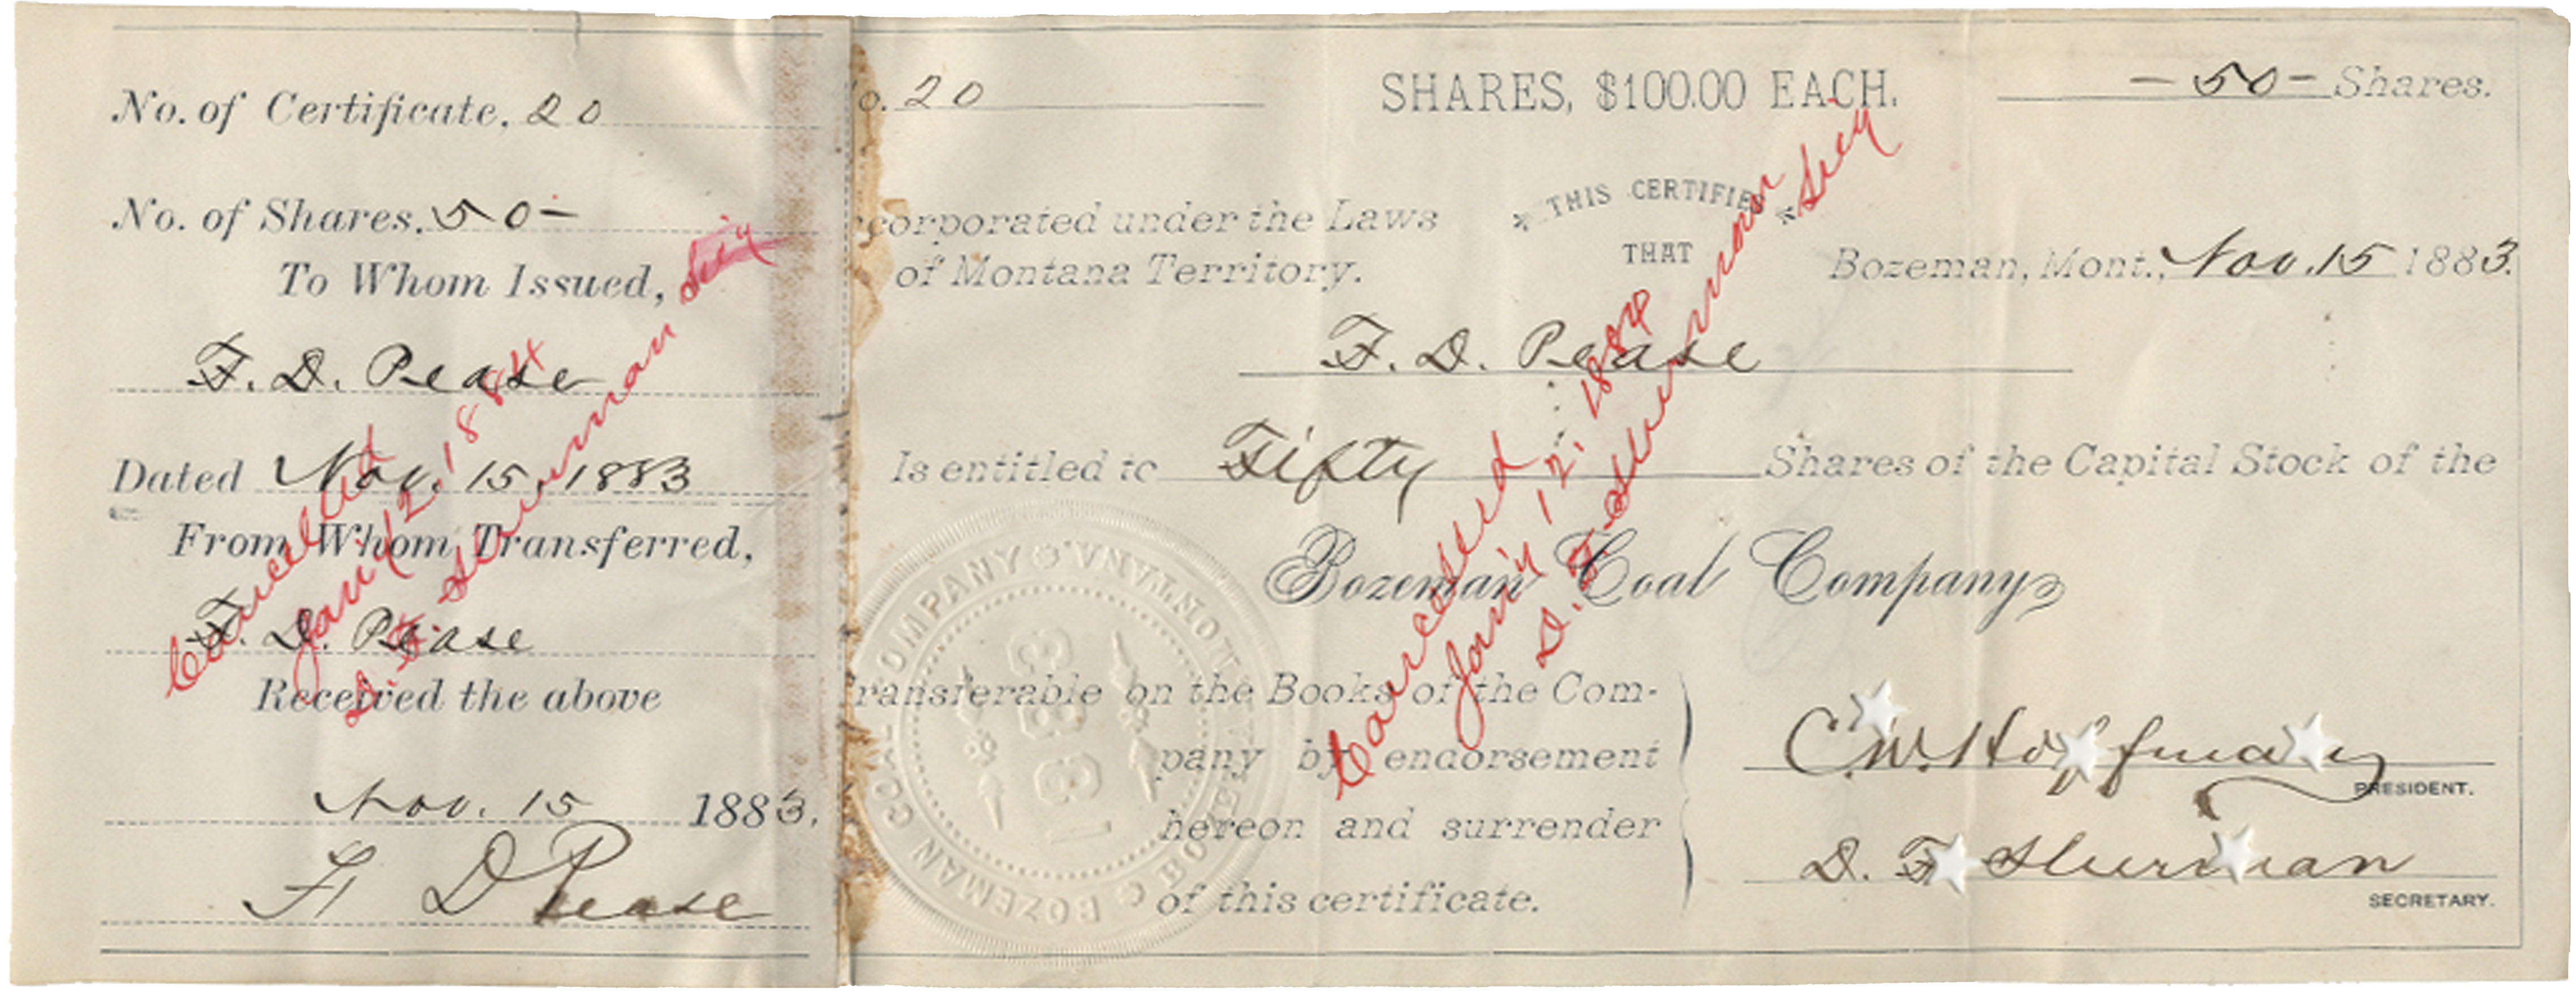 No. of Certificate, 20
No. of Shares. 50-
To Whom Issued,
F. D. Pease
Dated Nov. 15, 1883
From Whom Transferred,
F. D. Pease
Received the above
Nov. 15 1883.
F D Pease
Cancelled
Jan'y 12, 1884
D. F. Sherman Sec'y
o. 20
SHARES, $100.00 EACH.
- 50 - Shares.
corporated under the Laws
of Montana Territory.
THIS CERTIFIES
THAT
Bozeman, Mont., Nov. 15 1883.
F. D. Pease
Is entitled to Fifty Shares of the Capital Stock of the
Bozeman Coal Company
ransferable on the Books of the Com-
pany by endorsement
hereon and surrender
of this certificate.
C. W. Hoffman
PRESIDENT.
D. F. Sherman
SECRETARY.
Cancelled
Jan'y 12, 1884
D. F. Sherman Sec'y
BOZEMAN COAL COMPANY
BOZEMAN, MONTANA.
1883